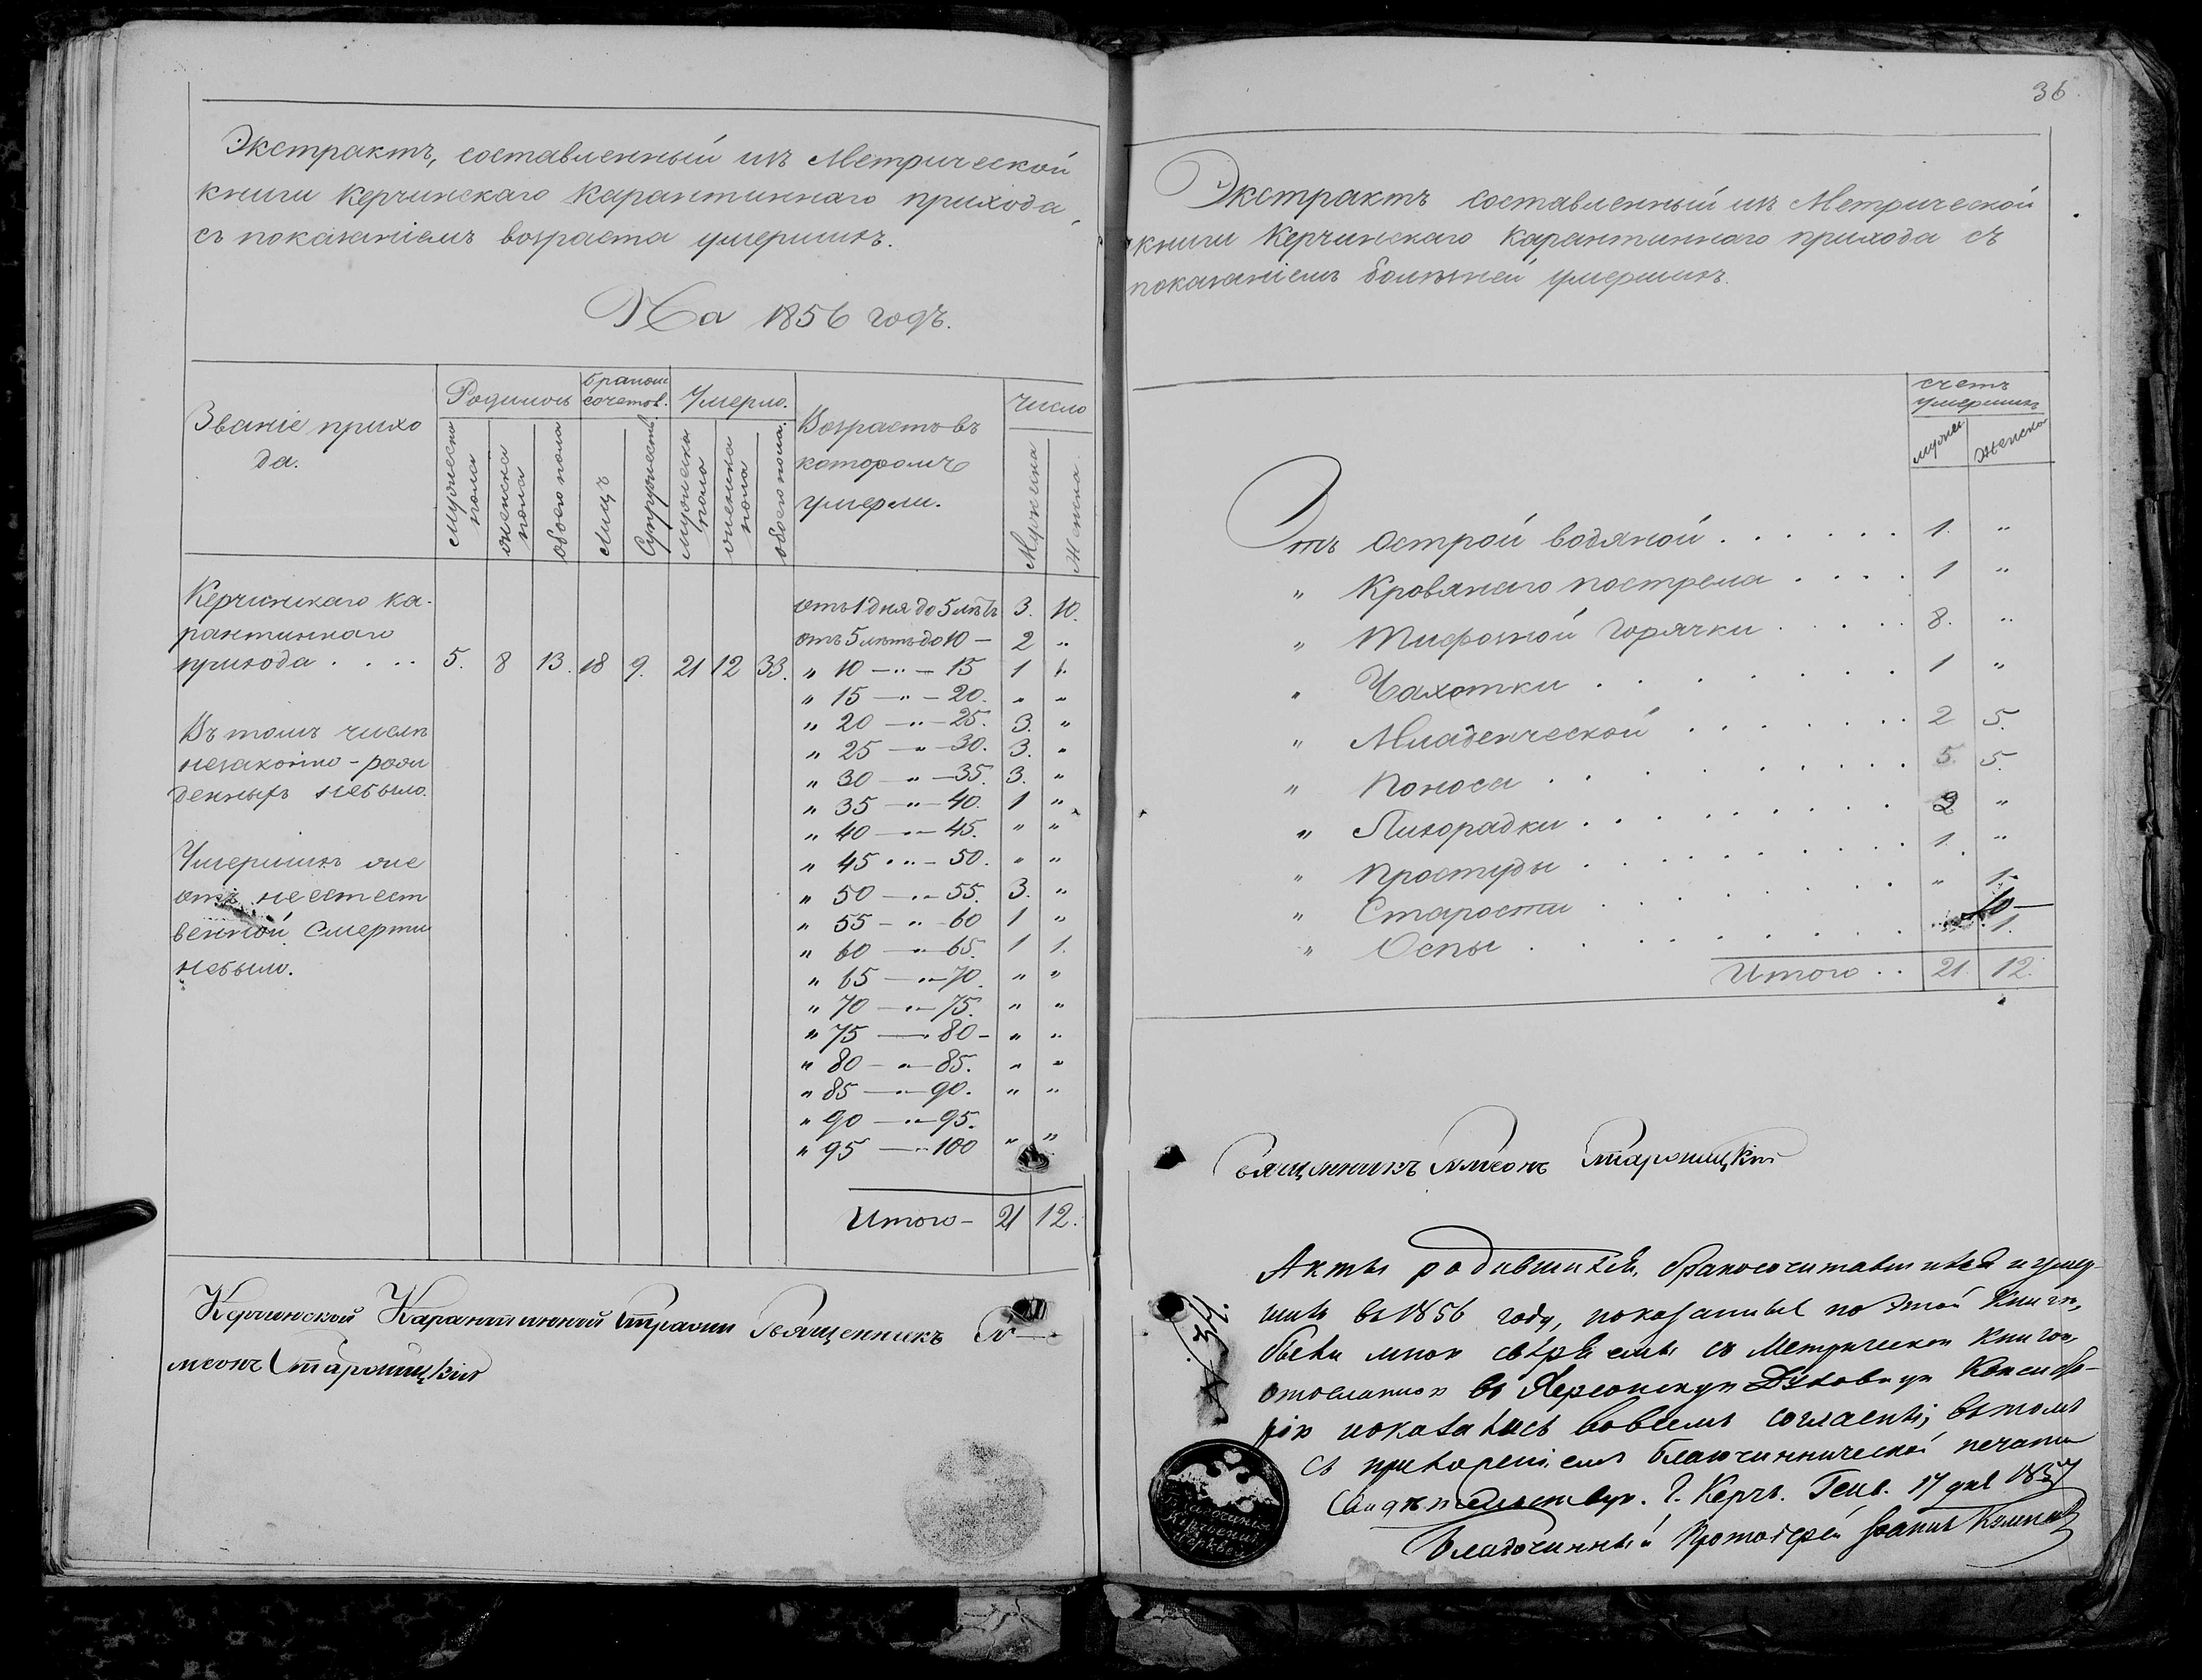 Экстрактъ, составленный изъ Метрической
книги Керчинскаго Карантиннаго прихода,
съ показаніемъ возраста умершихъ.
На 1856 годъ.
Званіе прихо
да.
Родилось
Мужеска пола
женска пола
обоего пола
бракомъ сочетов.
Лицъ
Супружествъ
Умерло.
мужеска пола
женска пола
обоего пола.
Возрастъ въ
которомъ
умерли.
Число
Мужеска
Женска.
Керчинскаго Ка-
рантиннаго
прихода . . . . 5. 8 13. 18 9. 21 12 33.
Въ томъ числѣ
незаконно-рож
денныхъ небыло.
Умершихъ же
отъ неестест
венной смерти
небыло.
отъ 1 дня до 5 лѣтъ 3. 10.
отъ 5 лѣтъ до 10 — 2 „
„ 10 — „ — 15 1 1.
„ 15 — „ — 20. „ „
„ 20 — „ — 25. 3. „
„ 25 — „ — 30. 3. „
„ 30 — „ — 35. 3. „
„ 35 — „ — 40. 1 „
„ 40 — „ — 45. „ „
„ 45 — „ — 50. „ „
„ 50 — „ — 55. 3. „
„ 55 — „ — 60 1 „
„ 60 — „ — 65. 1 1.
„ 65 — „ — 70. „ „
„ 70 — „ — 75. „ „
„ 75 — „ 80 — „ „
„ 80 — „ — 85. „ „
„ 85 — „ — 90. „ „
„ 90 — „ — 95.
„ 95 — „ 100 „ „
Итого — 21 12.
Керчинской Карантинной Священникъ
Старопицкій
36
Экстрактъ составленный изъ Метрической
книги Керчинскаго Карантиннаго прихода съ
показаніемъ болѣзней умершихъ.
счетъ
умершихъ
мужес
женска
Отъ острой водяной . . . . . . 1. „
„ Кроваваго пострела . . . . 1 „
„ Тифозной горячки . . . . . 8. „
„ Чахотки . . . . . . . 1 „
„ Младенческой . . . . . . . 2 5.
„ Поноса . . . . . . . . . 5. 5.
„ Лихорадки . . . . . . . . . 2 „
„ Простуды . . . . . . . . . 1. „
„ Старости . . . . . . . „ 1.
„ Оспы . . . . . . . . . 1.
Итого . . 21. 12.
Священникъ Старопицкій
Акты родившихся, бракосочитавшихся и умер-
шихъ въ 1856 году, показанные по этой книгѣ,
были мною свѣрены съ Метрическою книгою,
отосланною въ Херсонскую Духовную Консисто-
рію и оказались во всемъ согласны; въ томъ
съ приложеніемъ благочиннической печати
свидѣтельствую. Г. Керчь. Генв. 17 дня 1857
Благочинный Протоіерей Іоаннъ
Благочинія
Керченскихъ
церквей